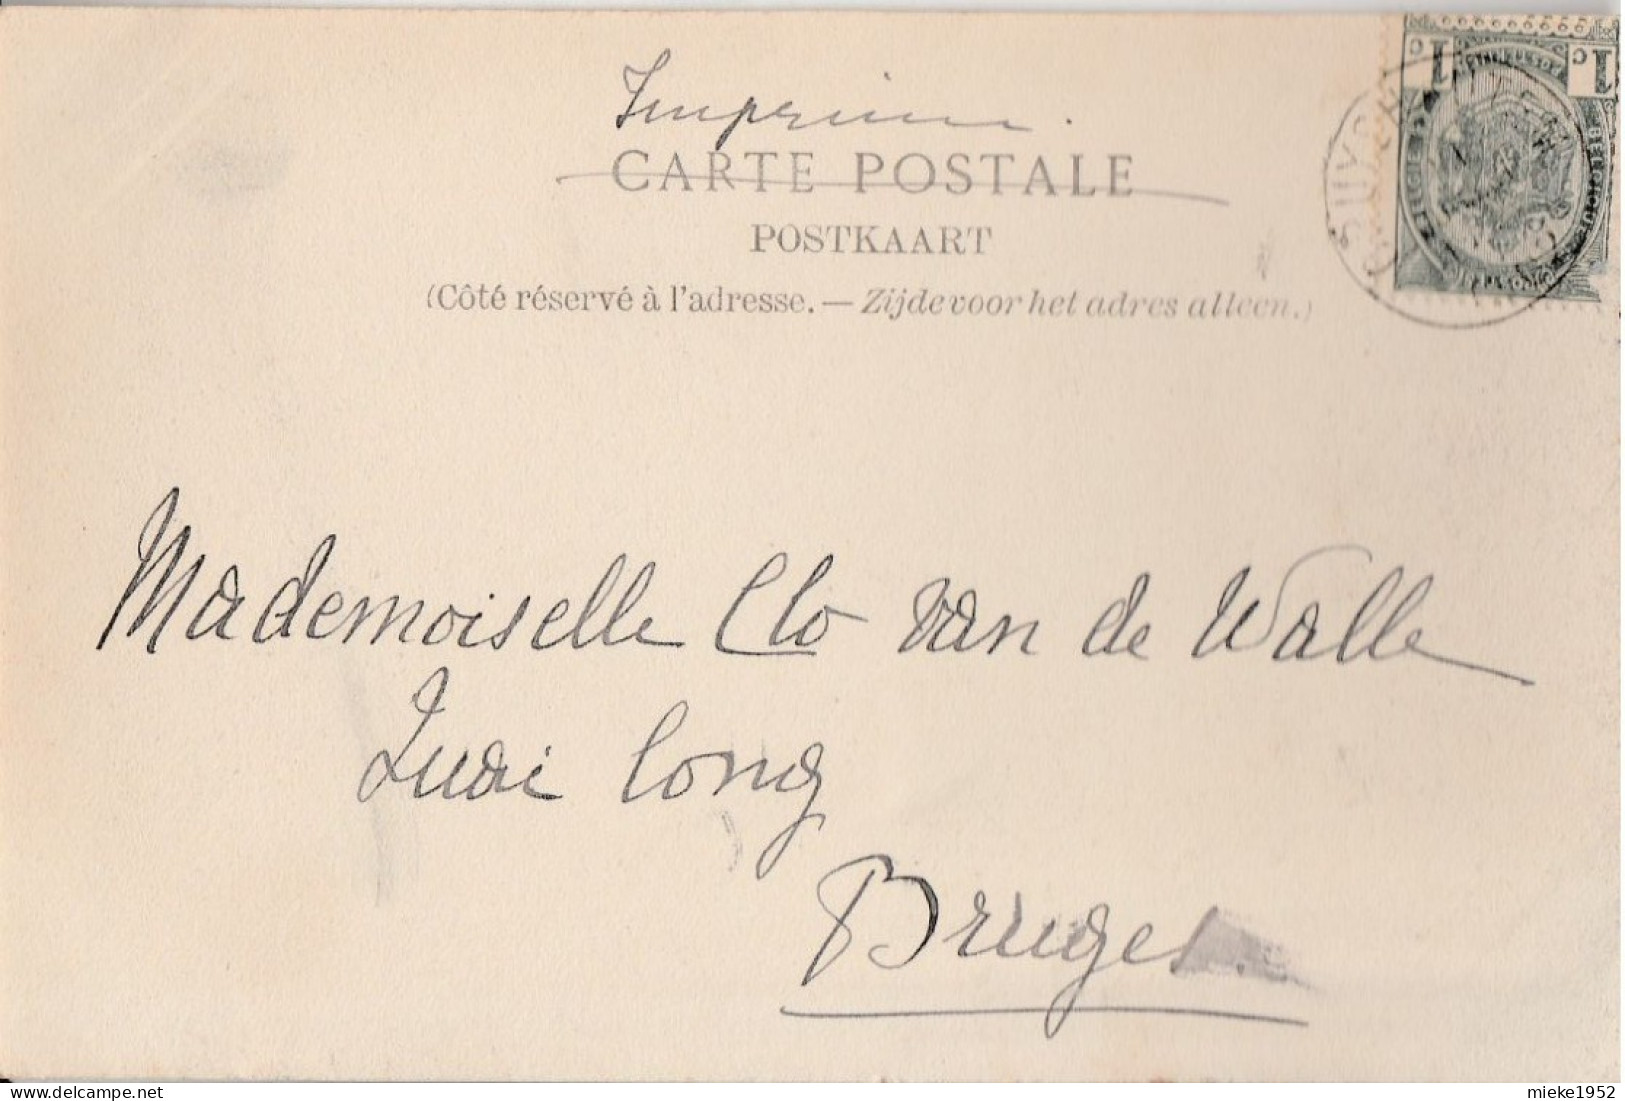 Imprimé.
CARTE POSTALE
POSTKAART
(Côté réservé à l'adresse. — Zijde voor het adres alleen.)
1 c 1 c
Mademoiselle Clo van de Walle
Quai Long
Bruges
delcampe.net
mieke1952